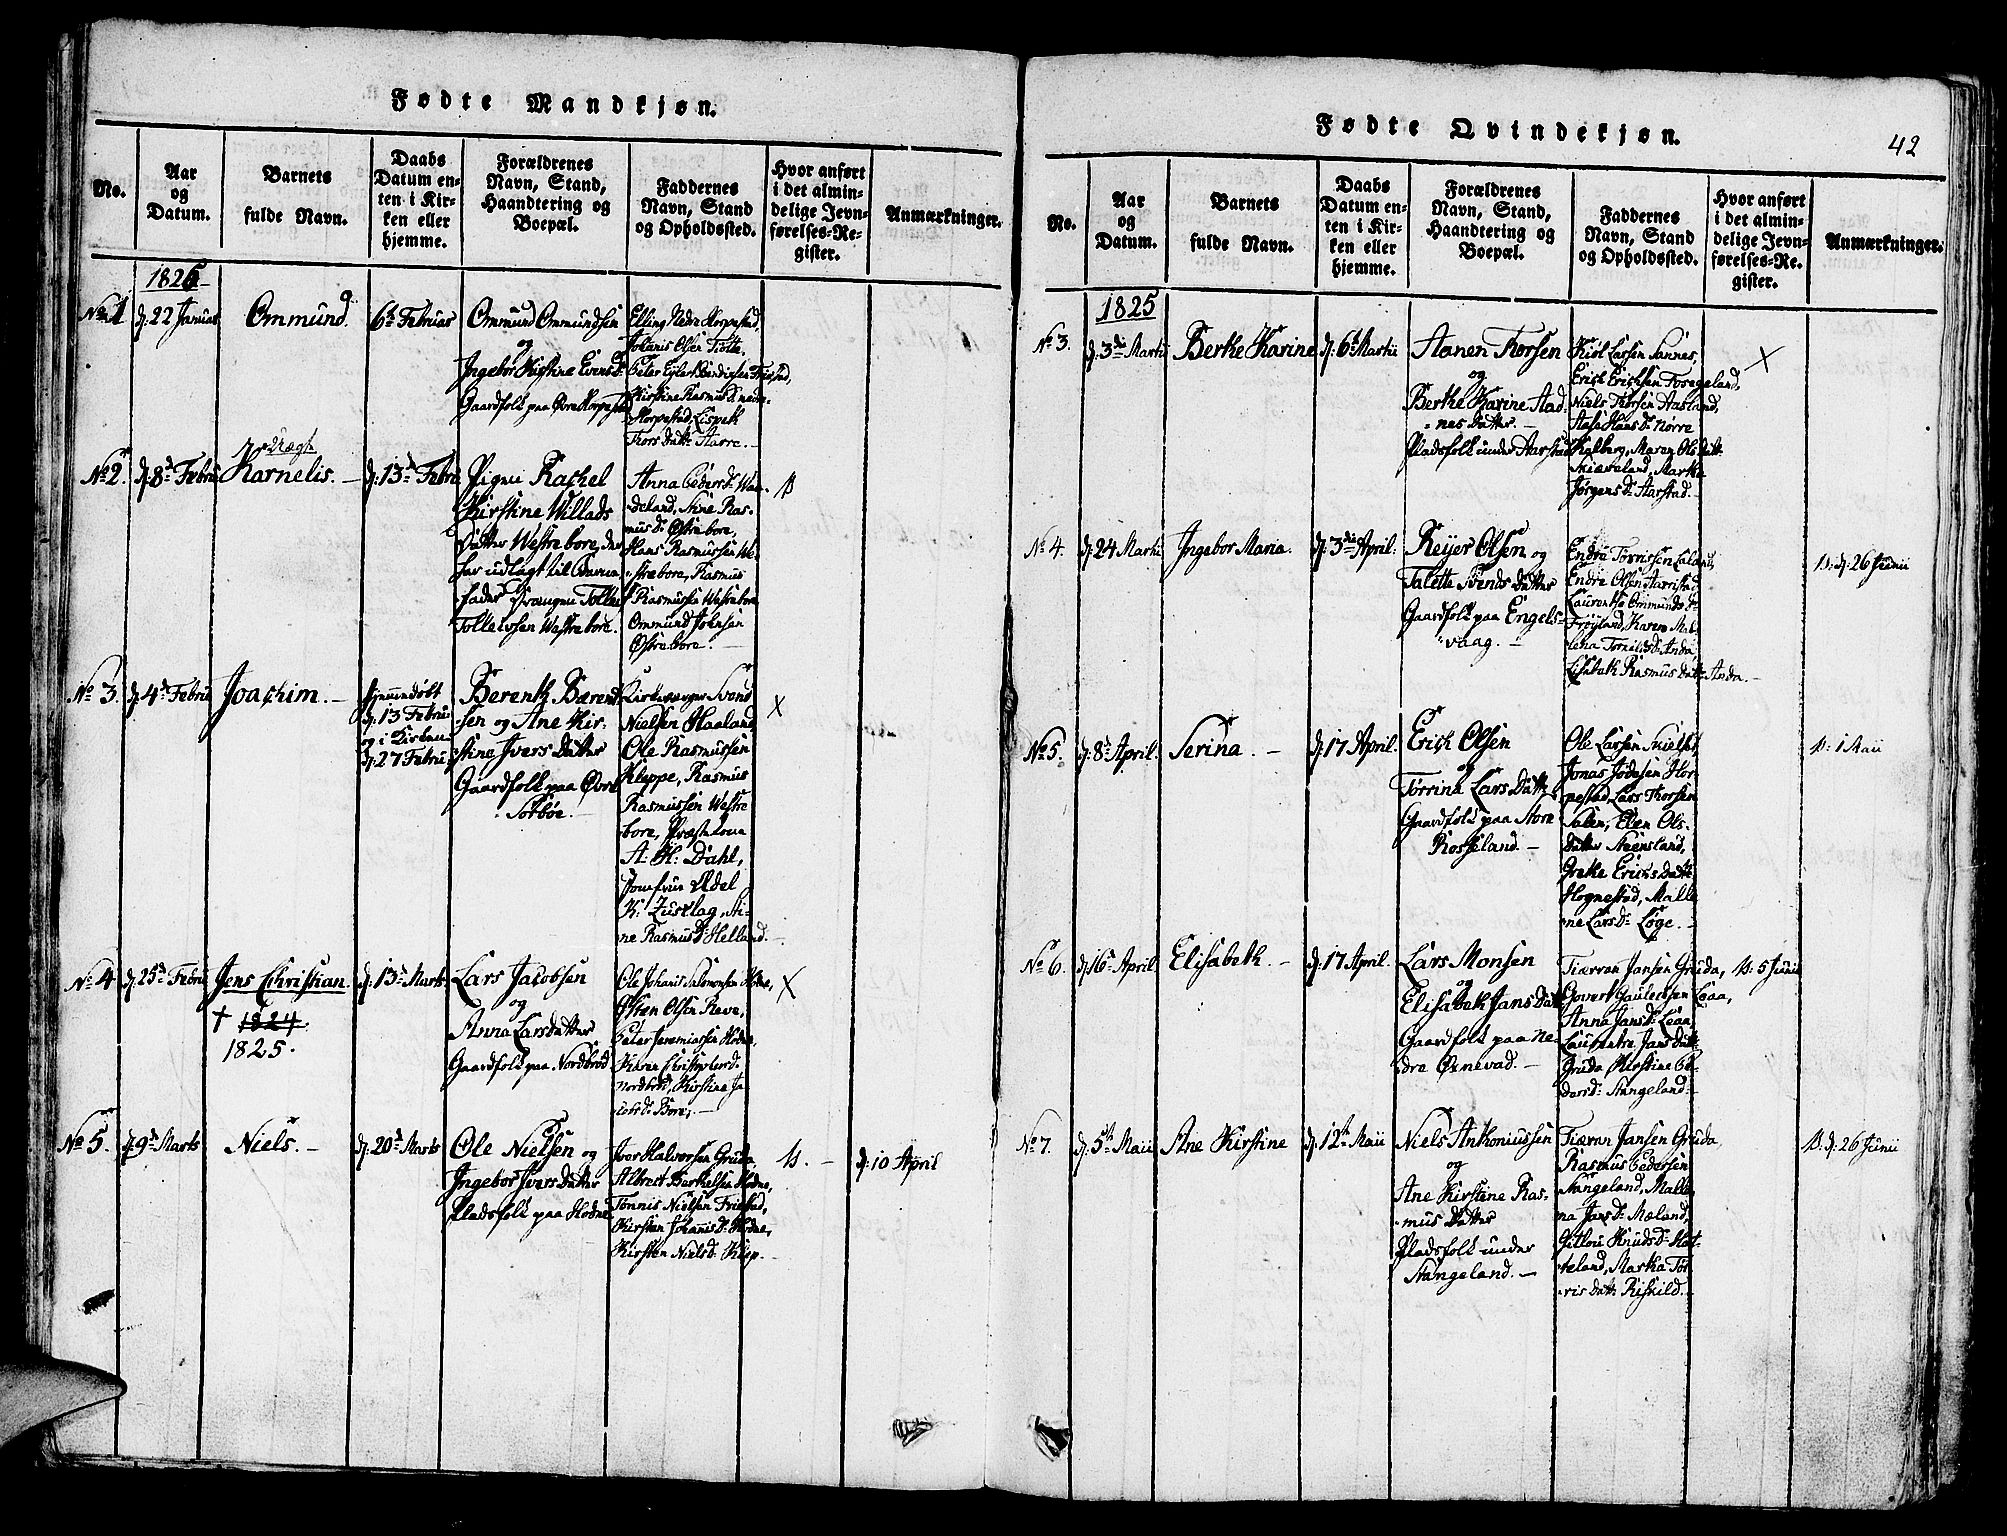 Fødte Mandkjøn.
No.
Aar
og
Datum.
Barnets
fulde Navn.
Daabs
Datum en-
ten i Kir-
ken eller
hjemme.
Forældrenes
Navn, Stand,
Haandtering og
Boepæl.
Faddernes
Navn, Stand
og Opholdssted.
Hvor anført
i det almin-
delige Jevn-
førelses-Re-
gister.
Anmærkninger.
1825
No 1
d: 22 Januar
Ommund.
6te Februar
Ommund Ommundsen
og
Ingebor Kistine Evensd:
Gaardfolk paa Øvre Horpestad
Elling Nedre Horpestad,
Johanis Olsen Tiøtte
Peter Eylert Bendigsen Friestad,
Kirstine Rasmusd: nedre
Horpestad, Lispeth
Tors Datter Aarre.
No 2.
d: 8de Febru
Uægte
Karnelis. –
d: 13de Febru
Pigen Rachel
Kirstine Willads
Datter Westrebore, der
har udlagt til Barne
fader Drengen Tolle
Tollevsen Westrebore.
Anna Pedersd: Wau-
deland, Stine Ras-
musd: Østrebore,
Hans Rasmussen We-
strebore, Rasmus
Rasmussen Westrebore
Ommund Johnsen
Østrebore. –
B
No 3.
d: 4de Febru
Joachim. –
hjemmedøbt
d: 13 Febru
og i Kirken
d: 27 Febru
Berenth Bærend-
sen og Ane Kir-
stine Ivers Datter
Gaardfolk paa Øvre
Sørbøe.
Kirkeværger Svend
Nielsen Haaland
Ole Rasmussen
Kleppe, Rasmus
Rasmussen Westre
bore, Præstekone
A: H: Dahl,
Jomfrue Edel
K: Zusklag, Sti-
ne Rasmusd: Helland. –
X
No 4
d: 25de Febru
Jens Christian.
† 1824.
1825.
d: 13de Marts
Lars Jacobsen
og
Anna Larsdatter
Gaardfolk paa Nordbrød
Ole Johanis Salomonsen Hodne,
Østen Olsen Reve,
Peter Jeremiassen Hodne,
Karen Christophersd:
Nordbrød, Kirstine Ja
cobsd: Bore, –
X
No 5.
d: 9de Marts
Niels. –
d: 20de Marts
Ole Nielsen og
Ingebor Ivers Datter
Pladsfolk paa Hodne
Iver Halvorsen Gruda
Albrect Berthelsen Hodne,
Tønnis Nielsen Friestad,
Kirsten Johanisd: Hodne,
Kirsten Nielsd: Klep. –
B. –
d: 10 April
Fødte Qvindekjøn.
42
No.
Aar
og
Datum.
Barnets
fulde Navn.
Daabs
Datum en-
ten i Kir-
ken eller
hjemme.
Forældrenes
Navn, Stand,
Haandtering og
Boepæl.
Faddernes
Navn, Stand
og Opholdssted.
Hvor anført
i det almin-
delige Jevn-
førelses-Re-
gister.
Anmærkninger.
1825
No 3.
d: 3die Martii
Berthe Karine
d: 6te Martii
Aanen Thorsen
og
Berthe Karine Aad-
nes Datter. –
Pladsfolk under Aarstad
Kiøl Larsen Sannes,
Erich Erichsen Fosegeland,
Niels Thorsen Aasland,
Aase Hansd: Nørre
Kalberg, Maren Ols Datt:
Skiæveland, Martha
Jørgensd: Aarstad. –
X
No 4.
d: 24 Martii
Ingebor Maria.
d: 3die April.
Reijer Olsen og
Talette Svends Datter
Gaardfolk paa Engels-
vaag. –
Endre Tørrissen Laland,
Endre Olsen Aarristad,
Laurentse Ommundsd:
Frøyland, Karen Mal-
lena Tørrilsd: Anda,
Lisabeth Rasmusdatter Anda. –
B: d: 26 Junii
No 5.
d: 8de April.
Serina. –
d: 17 April.
Erich Olsen
og
Torrina Lars Datter
Gaardfolk paa Store
Rosseland. –
Ole Larsen Skielset,
Jonas Jødesen Hor-
pestad, Lars Thorsen
Salen, Elen Ols-
datter Steensland,
Grethe Erichs Datter
Hognestad, Malle
ne Larsd: Løge. –
B: 1 Maii
No 6.
d: 16de April
Elisabeth. –
d: 17 April.
Lars Monsen
og
Elisabeth Jans Datt:
Gaardfolk paa Ne-
dre Ørnevad. –
Tiærran Jansen Gruda,
Govert Gautersen Leaa,
Anna Jansd: Leaa,
Laurentre Jans Datt:
Gruda, Kirstine Pe-
dersd: Stangeland. –
B: 5 Junii
No 7.
d: 5te Maii
Ane Kirstine
d: 12te Maii
Niels Anthoniussen
og
Ane Kirstine Ras-
mus Datter
Pladsfolk under
Stangeland. –
Tiæran Jansen Gruda,
Rasmus Pedersen
Stangeland, Malle-
na Jansd: Mæland,
Gitlou Knudsd: Hat-
teland, Martha Tør-
ris Datt: Riskild. –
B: d: 26 Junii